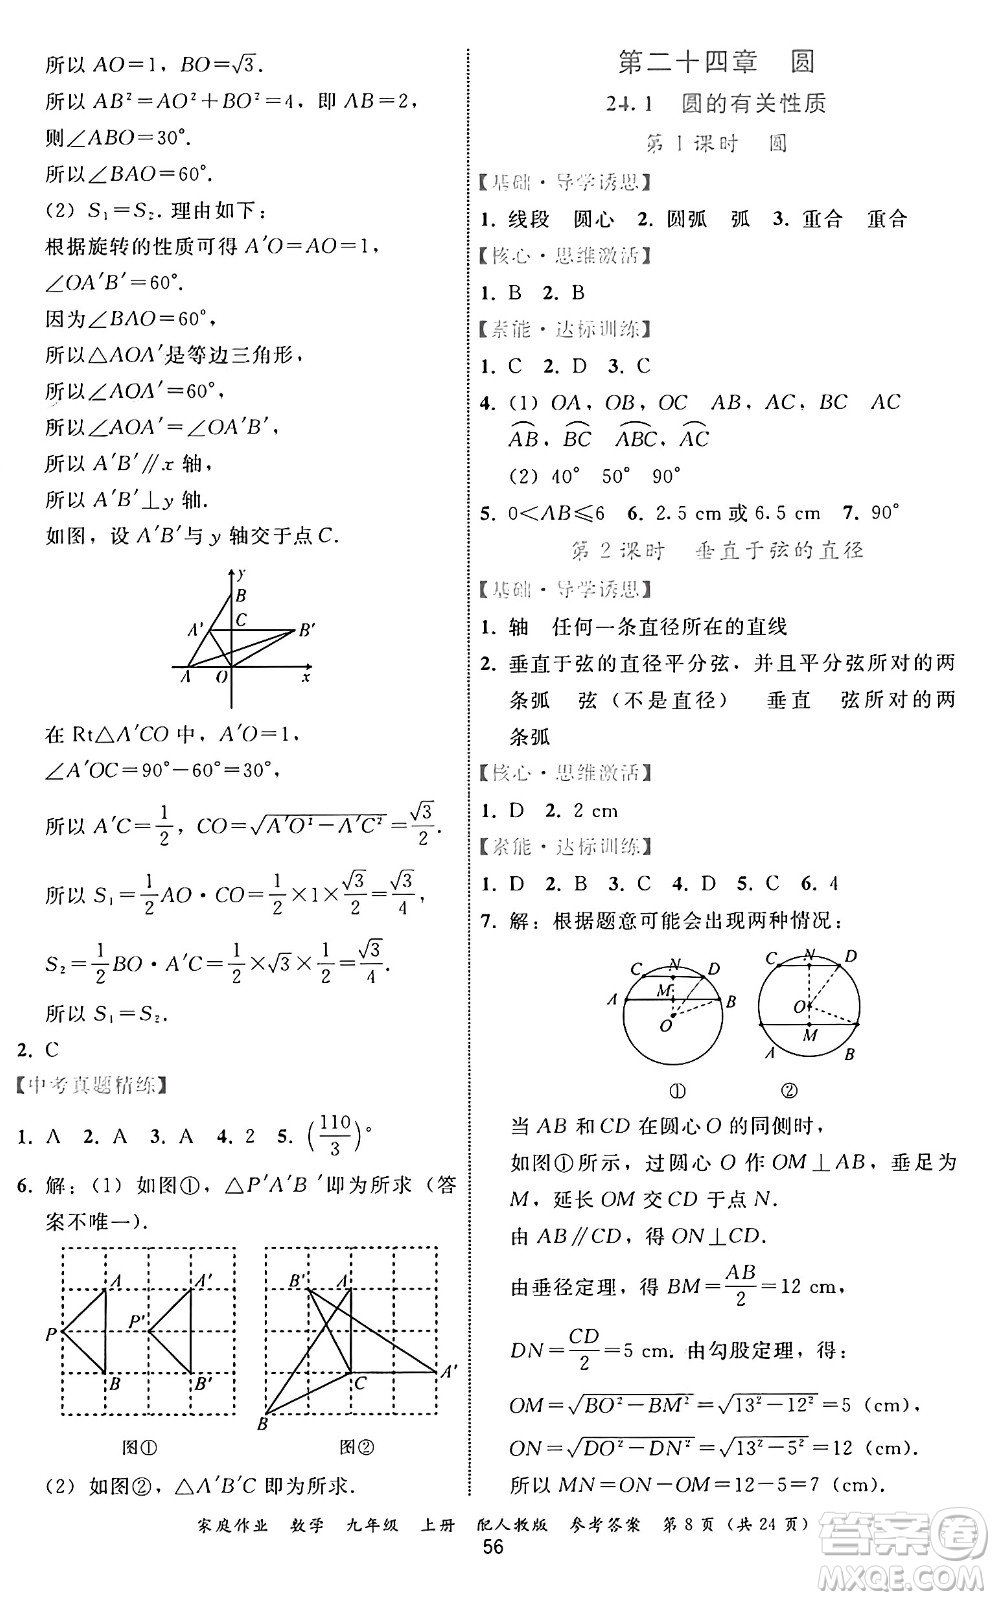 所以 AO=1，BO=√3.
所以 AB²=AO²+BO²=4，即 AB=2，
则∠ABO=30°.
所以∠BAO=60°.
(2) S₁=S₂.理由如下：
根据旋转的性质可得 A′O=AO=1，
∠OA′B′=60°.
因为∠BAO=60°，
所以△AOA′是等边三角形，
所以∠AOA′=60°，
所以∠AOA′=∠OA′B′，
所以 A′B′∥x 轴，
所以 A′B′⊥y 轴.
如图，设 A′B′与 y 轴交于点 C.
y
B
C
A′
B′
A
O
x
在 Rt△A′CO 中，A′O=1，
∠A′OC=90°−60°=30°，
所以 A′C=1/2，CO=√(A′O²−A′C²)=√3/2.
所以 S₁=1/2 AO·CO=1/2×1×√3/2=√3/4，
S₂=1/2 BO·A′C=1/2×√3×1/2=√3/4.
所以 S₁=S₂.
2. C
【中考真题精练】
1. A 2. A 3. A 4. 2 5. (110/3)°
6. 解：(1) 如图①，△P′A′B′即为所求（答
案不唯一）.
A A′
P P′
B B′
图①
B′ A
C A′
B
图②
(2) 如图②，△A′B′C 即为所求.
第二十四章 圆
24.1 圆的有关性质
第 1 课时 圆
【基础·导学诱思】
1. 线段 圆心 2. 圆弧 弧 3. 重合 重合
【核心·思维激活】
1. B 2. B
【素能·达标训练】
1. C 2. D 3. C
4. (1) OA，OB，OC AB，AC，BC AC
A͡B，B͡C A͡BC，A͡C
(2) 40° 50° 90°
5. 0<AB≤6 6. 2.5 cm 或 6.5 cm 7. 90°
第 2 课时 垂直于弦的直径
【基础·导学诱思】
1. 轴 任何一条直径所在的直线
2. 垂直于弦的直径平分弦，并且平分弦所对的两
条弧 弦（不是直径） 垂直 弦所对的两
条弧
【核心·思维激活】
1. D 2. 2 cm
【素能·达标训练】
1. D 2. B 3. C 4. D 5. C 6. 4
7. 解：根据题意可能会出现两种情况：
C N D
A M B
O
①
C N D
O
A M B
②
当 AB 和 CD 在圆心 O 的同侧时，
如图①所示，过圆心 O 作 OM⊥AB，垂足为
M，延长 OM 交 CD 于点 N.
由 AB∥CD，得 ON⊥CD.
由垂径定理，得 BM=AB/2=12 cm，
DN=CD/2=5 cm. 由勾股定理，得：
OM=√(BO²−BM²)=√(13²−12²)=5 (cm)，
ON=√(DO²−DN²)=√(13²−5²)=12 (cm).
所以 MN=ON−OM=12−5=7 (cm).
家庭作业 数学 九年级 上册 配人教版 参考答案 第 8 页（共 24 页）
56
作业精灵